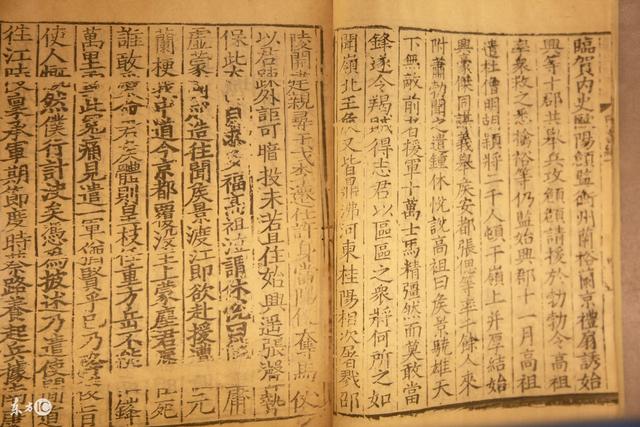 臨賀內史歐陽頠監衡州蘭裕蘭京禮扇誘始
興等十郡共舉兵攻頠頠請援於勃勃令高祖
率衆救之悉擒裕等仍監始興郡十一月高祖
遣杜僧明胡穎將二千人頓于嶺上并厚結始
興豪傑同謀義舉侯安都張偲等率千餘人來
附蕭勃聞之遣鍾休悅說高祖曰侯景驍雄天
下無敵前者援軍十萬士馬精彊然而莫敢當
鋒遂令羯賊得志君以區區之衆將何所之如
聞嶺北王侯又皆鼎沸河東桂陽相次屠戮邵
陵開建親尋干戈李遷仕許身當陽便奪馬仗
以君疎外詎可暗投未若且住始興遙張聲勢
保此太自求多福高祖泣謂休悅曰庸
虛蒙國成造往聞侯景渡江即欲赴援遭元
蘭梗我中道今京都覆沒主上蒙塵君辱臣死
誰敢愛命君侯體則皇枝任重方岳不能鋒
萬里雪此冤痛見遣一軍猶賢乎已乃旨
使人慨然僕行計決矣憑為披述乃遣使間道
往江陵稟承軍期節度時蔡路養起兵據南
东方IC